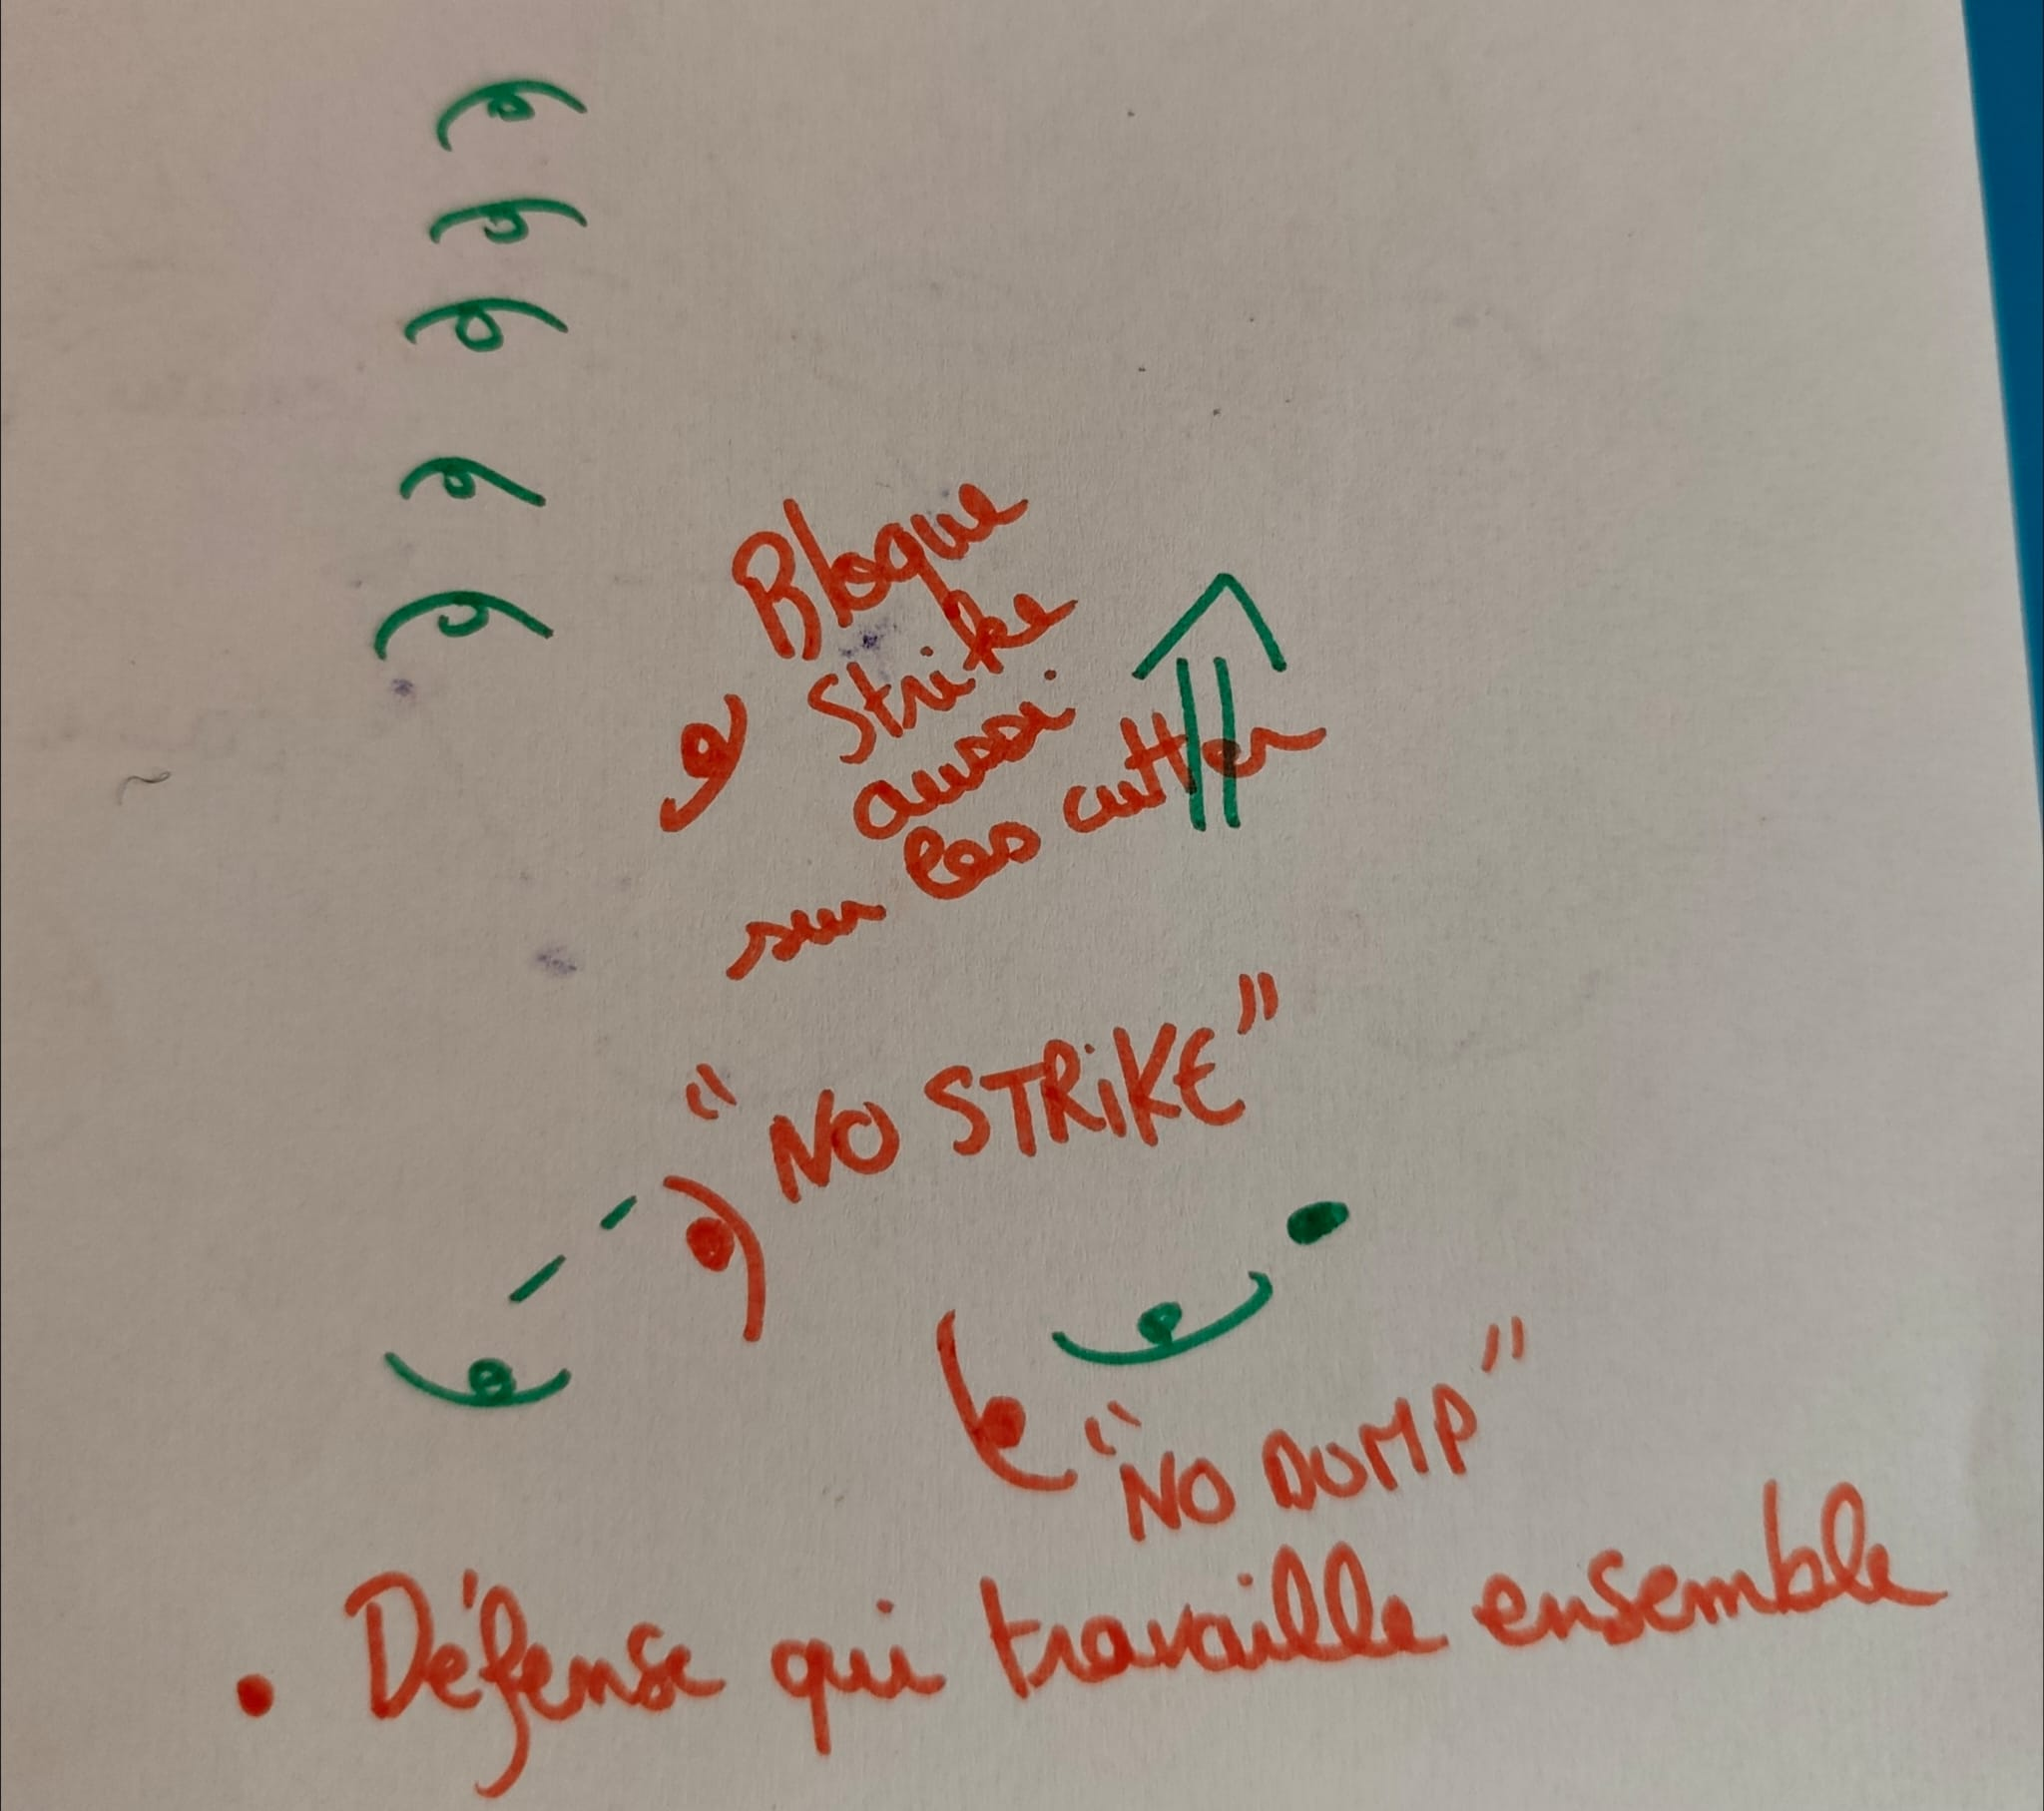 Bloque
Strike
aussi
sur les cutter
"NO STRiKE"
"NO DUMP"
• Défense qui travaille ensemble